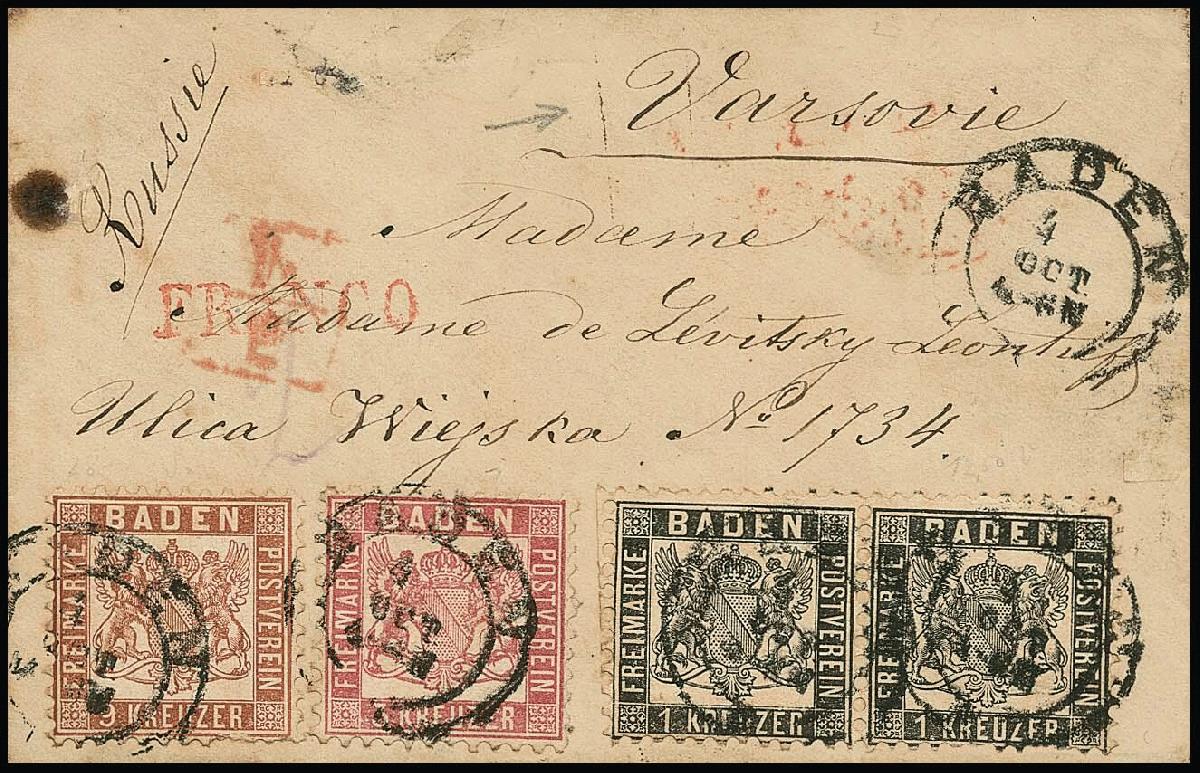 Russie
Varsovie
BADEN
4
OCT
Madame
FRANCO
Madame de Lévitsky
Ulica Wiejska No 1734.
BADEN
FREIMARKE
POSTVEREIN
9 KREUZER
BADEN
FREIMARKE
POSTVEREIN
KREUZER
BADEN
4
OCT
BADEN
FREIMARKE
POSTVEREIN
1 KREUZER
BADEN
FREIMARKE
POSTVEREIN
1 KREUZER